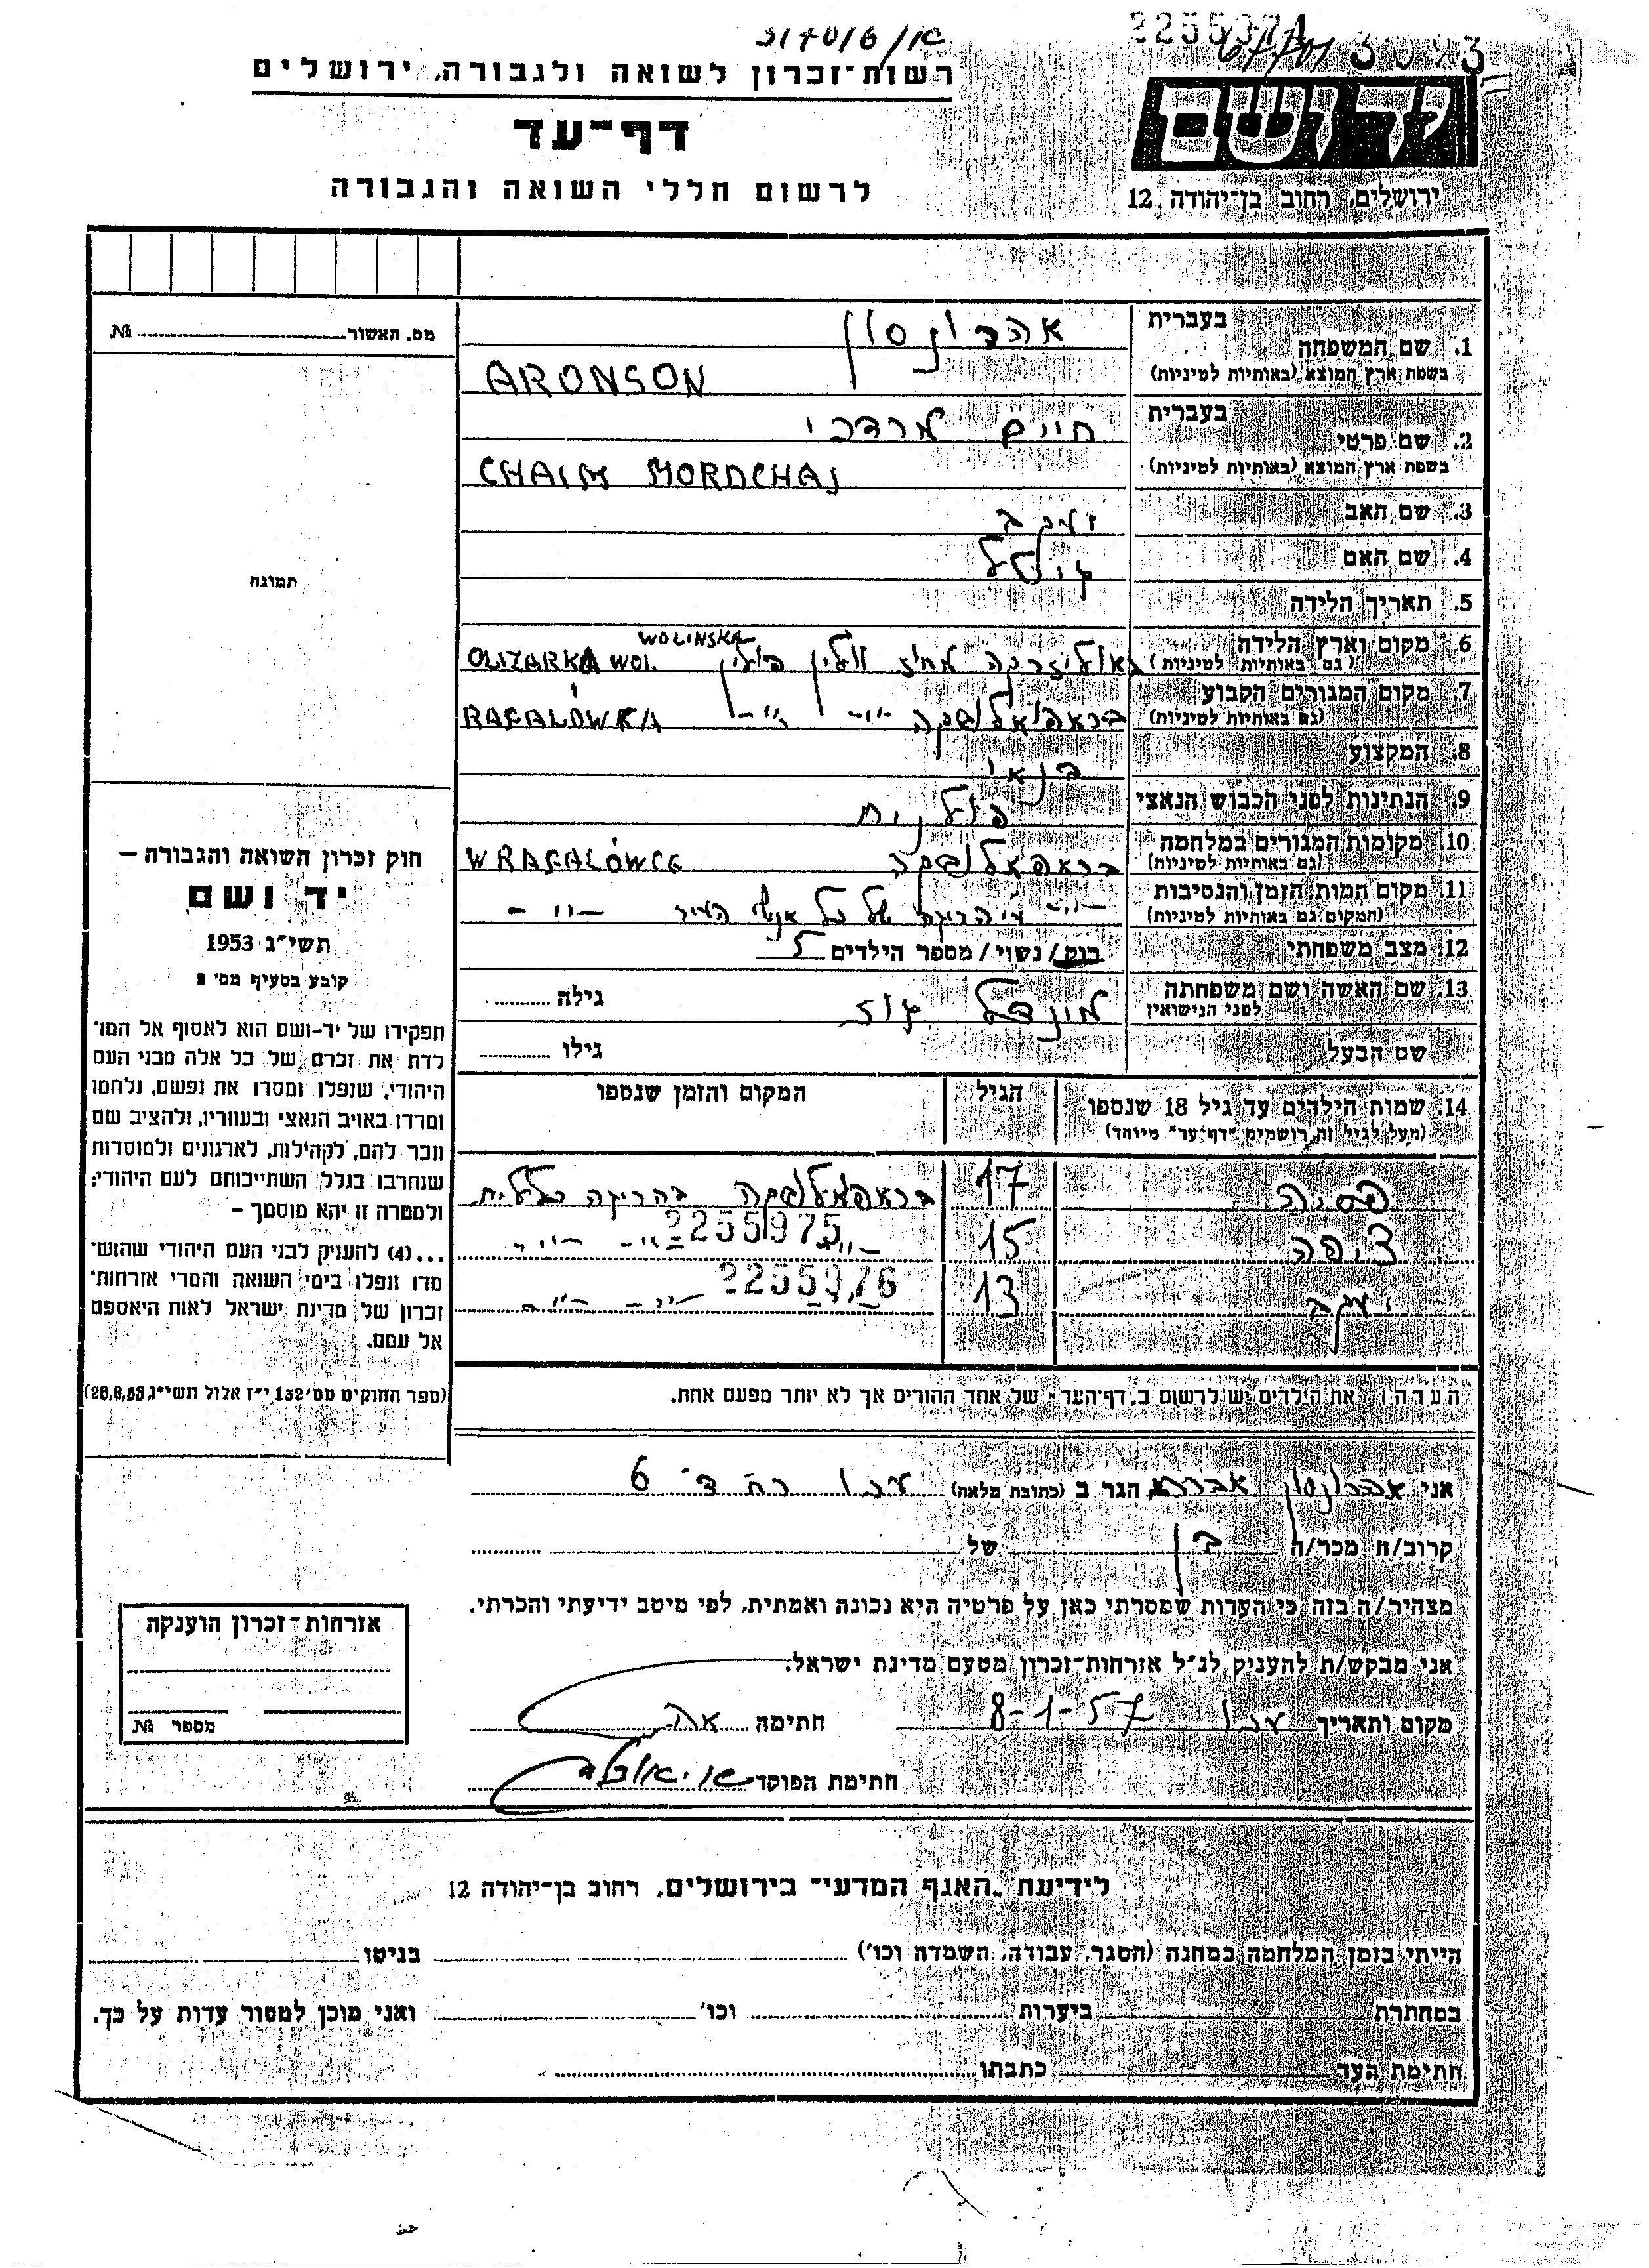 2255974
רשות־זכרון לשואה ולגבורה, ירושלים
יד ושם
דף־עד
לרשום חללי השואה והגבורה
ירושלים, רחוב בן־יהודה 12
מס. האשור № 
בעברית אהרונסון
1. שם המשפחה
בשפת ארץ המוצא (באותיות לטיניות) ARONSON
בעברית חיים מרדכי
2. שם פרטי
בשפת ארץ המוצא (באותיות לטיניות) CHAIM MORDCHAJ
3. שם האב יעקב
4. שם האם
תמונה
5. תאריך הלידה
6. מקום וארץ הלידה
(גם באותיות לטיניות) באוליזרקה מחוז וולין פולין OLIZARKA WOL. WOLINSKA
7. מקום המגורים הקבוע
(גם באותיות לטיניות) בראפאלובקה -"- -"- RAFALÓWKA
8. המקצוע בנאי
9. הנתינות לפני הכבוש הנאצי פולנית
10. מקומות המגורים במלחמה
(גם באותיות לטיניות) בראפאלובקה W RAFALÓWCE
11. מקום המות, הזמן והנסיבות
(המקום גם באותיות לטיניות) -"- של כל אנשי העיר -"-
12. מצב משפחתי רווק / נשוי / מספר הילדים 5
13. שם האשה ושם משפחתה
לפני הנישואין מינדל גוז גילה
שם הבעל גילו
14. שמות הילדים עד גיל 18 שנספו הגיל המקום והזמן שנספו
(מעל לגיל זה, רושמים "דף־עד" מיוחד)
פסיה 17 בראפאלובקה בהריגה כללית
צפה 15 -"- -"- -"- 2255975
יעקב 13 -"- -"- 2255976
הערה: את הילדים יש לרשום ב„דף־העד" של אחד ההורים אך לא יותר מפעם אחת.
חוק זכרון השואה והגבורה –
יד ושם
תשי"ג 1953
קובע בסעיף מס' 2
תפקידו של יד-ושם הוא לאסוף אל המו־
לדת את זכרם של כל אלה מבני העם
היהודי, שנפלו ומסרו את נפשם, נלחמו
ומרדו באויב הנאצי ובעוזריו, ולהציב שם
וזכר להם, לקהילות, לארגונים ולמוסדות
שנחרבו בגלל השתייכותם לעם היהודי;
ולמטרה זו יהא מוסמך –
...(4) להעניק לבני העם היהודי שהוש־
מדו ונפלו בימי השואה והמרי אזרחות־
זכרון של מדינת ישראל לאות היאספם
אל עמם.
(ספר החוקים מס' 132, י"ז אלול תשי"ג 28.8.53)
אני אהרונסון אברהם הגר ב (כתובת מלאה) עכו רח ד' 6
קרוב/ה מכר/ה בן של
מצהיר/ה בזה כי העדות שמסרתי כאן על פרטיה היא נכונה ואמתית, לפי מיטב ידיעתי והכרתי.
אני מבקש/ת להעניק לנ"ל אזרחות־זכרון מטעם מדינת ישראל.
מקום ותאריך עכו 8-1-57 חתימה
חתימת הפוקד
אזרחות־זכרון הוענקה
מספר №
לידיעת „האגף המדעי" בירושלים, רחוב בן־יהודה 12
הייתי בזמן המלחמה במחנה (הסגר, עבודה, השמדה וכו') בגיטו
במחתרת ביערות וכו' ואני מוכן למסור עדות על כך.
חתימת העד כתבתו